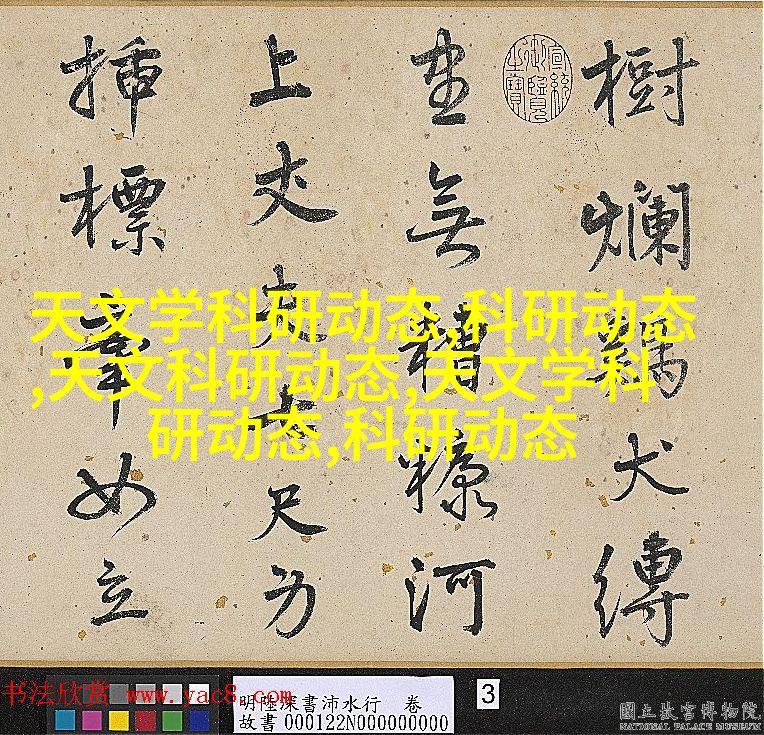 樹爛犬縛
宣統御覽之寶
坐無糟糠河
上丈尺
插標女立
天文学科研动态,科研动态
,天文科研动态,天文学科
研动态,科研动态
书法欣赏 www.yac8.com
明陸深書沛水行 卷
故書 000122N000000000
3
國立故宮博物院
NATIONAL PALACE MUSEUM